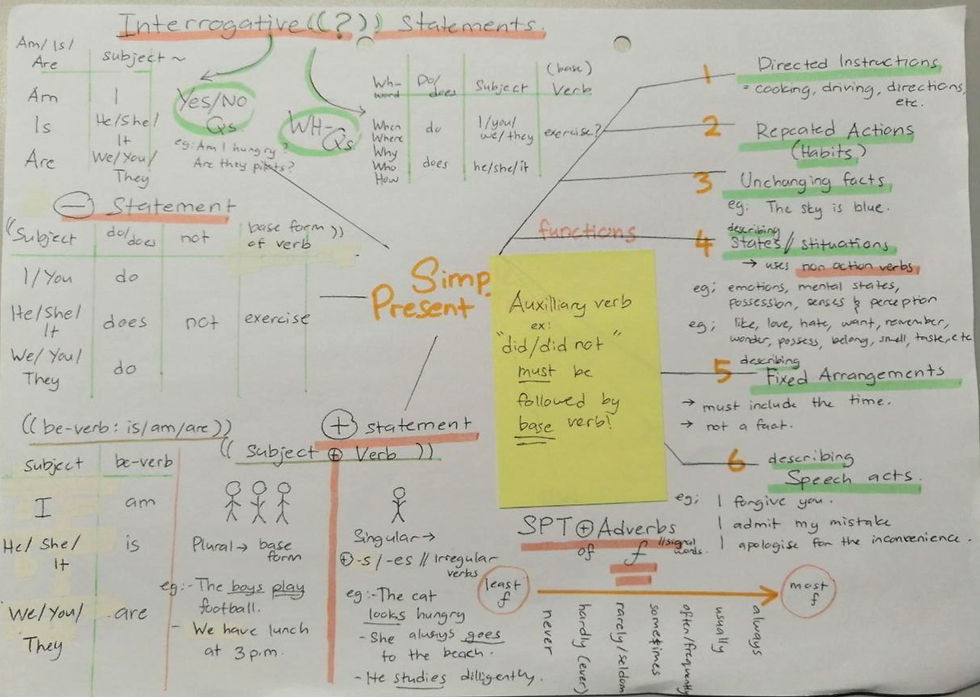 Interrogative ((?)) Statements.
Am/Is/
Are
subject ~
Am
I
Is
He/She/
It
Are
We/You/
They
Yes/No
Qs.
eg: Am I hungry?
Are they pilots?
WH-
Qs
Wh-
word
Do/
does
Subject
(base)
Verb
When
Where
Why
Who
How
do
I/you/
we/they
exercise?
does
he/she/it
(-) Statement
((Subject
do/
does
not
base form ))
of verb
I/You
do
He/She/
It
does
not
exercise
We/You/
They
do
Simp
Present
functions
1 Directed Instructions
- cooking, driving, directions,
etc.
2 Repeated Actions
(Habits)
3 Unchanging facts
eg: The sky is blue.
describing
4 States/stituations
→ uses non action verbs
eg; emotions, mental states,
possession, senses & perception
eg; like, love, hate, want, remember,
wonder, possess, belong, smell, taste, etc
describing
5 Fixed Arrangements
→ must include the time.
→ not a fact.
6 describing
Speech acts.
eg; I forgive you.
I admit my mistake
I apologise for the inconvenience.
Auxilliary verb
ex:
"did/did not"
must be
followed by
base verb!
((be-verb: is/am/are))
Subject
be-verb
I
am
He/She/
It
is
We/You/
They
are
(+) statement
((Subject (+) Verb ))
Plural → base
form
eg:- The boys play
football.
- We have lunch
at 3 p.m.
Singular →
(+) -s/-es // Irregular
verbs
eg:- The cat
looks hungry
- She always goes
to the beach.
- He studies dilligently.
SPT (+) Adverbs
of f //signal
words.
least
f
most
f
never
hardly (ever)
rarely/seldom
sometimes
often/frequently
usually
always